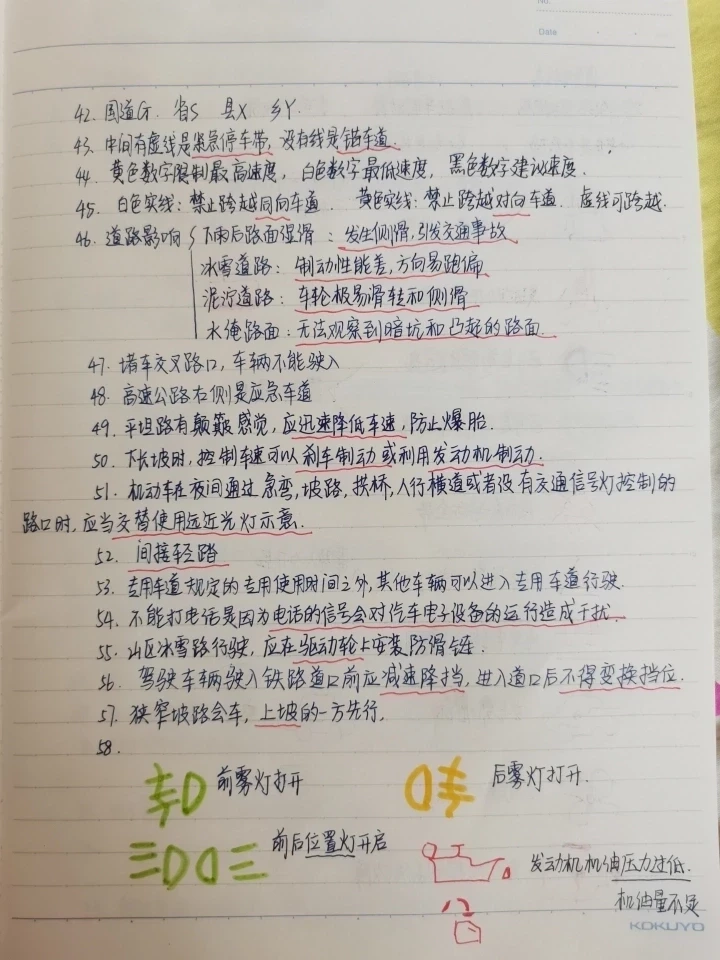 No.
Date
42. 国道G. 省S 县X 乡Y.
43. 中间有虚线是紧急停车带, 没有线是错车道.
44. 黄色数字限制最高速度, 白色数字最低速度, 黑色数字建议速度.
45. 白色实线: 禁止跨越同向车道. 黄色实线: 禁止跨越对向车道. 虚线可跨越.
46. 道路影响 { 下雨后路面湿滑: 发生侧滑, 引发交通事故
冰雪道路: 制动性能差, 方向易跑偏
泥泞道路: 车轮极易滑转和侧滑
水淹路面: 无法观察到暗坑和凸起的路面
47. 堵车交叉路口, 车辆不能驶入
48. 高速公路右侧是应急车道
49. 平坦路有颠簸感觉, 应迅速降低车速, 防止爆胎.
50. 下长坡时, 控制车速可以刹车制动或利用发动机制动.
51. 机动车在夜间通过急弯, 坡路, 拱桥, 人行横道或者没有交通信号灯控制的
路口时, 应当交替使用远近光灯示意.
52. 间接轻踏
53. 专用车道规定的专用使用时间之外, 其他车辆可以进入专用车道行驶.
54. 不能打电话是因为电话的信号会对汽车电子设备的运行造成干扰.
55. 山区冰雪路行驶, 应在驱动轮上安装防滑链.
56. 驾驶车辆驶入铁路道口前应减速降挡, 进入道口后不得变换挡位.
57. 狭窄坡路会车, 上坡的一方先行.
58.
前雾灯打开 后雾灯打开.
前后位置灯开启
发动机机油压力过低.
机油量不足
KOKUYO